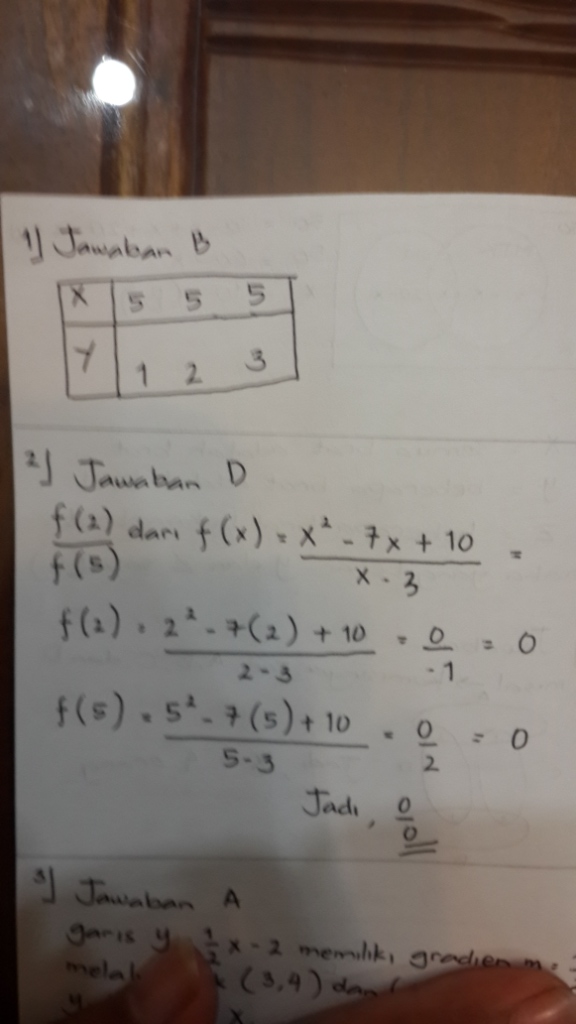 1] Jawaban B
X 5 5 5
Y 1 2 3
2] Jawaban D
f(2)/f(5) dari f(x) = (x² - 7x + 10)/(x - 3) =
f(2) = (2² - 7(2) + 10)/(2 - 3) = 0/-1 = 0
f(5) = (5² - 7(5) + 10)/(5 - 3) = 0/2 = 0
Jadi, 0/0
3] Jawaban A
garis y = 1/2 x - 2 memiliki gradien m =
(3,4) dan (
y
x